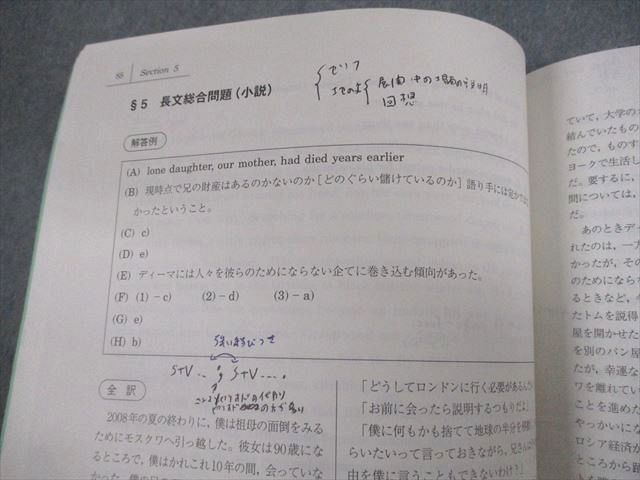 88 Section 5
§5 長文総合問題(小説)
セリフ
その他
展開中の場面の説明
回想
解答例
(A) lone daughter, our mother, had died years earlier
(B) 現時点で兄の財産はあるのかないのか[どのぐらい儲けているのか]語り手には定かで
かったということ。
(C) c)
(D) e)
(E) ディーマには人々を彼らのためにならない企てに巻き込む傾向があった。
(F) (1)-c) (2)-d) (3)-a)
(G) e)
(H) b)
強い結びつき
S+V … ; S+V ….
全訳
2008年の夏の終わりに,僕は祖母の面倒をみる
ためにモスクワへ引っ越した。彼女は90歳にな
るところで,僕はかれこれ10年の間,会っていな
「どうしてロンドンに行く必要があるん
「お前に会ったら説明するつもりだよ」
「僕に何もかも捨てて地球の半分を横断し
らいたいって言っておきながら,兄さん
中を僕に言うこともできないわけ?」
ていて,大学の
結んでいたもの
たので,ものす
ヨークで生活し
だ。要するに,
間については,
だ。
あのときディ
れたのは,一方
かったが,その
のためにならな
るときなど,
たトムを説得
屋を開かせた
を別のパン屋
たが,幸運な
ワを離れてい
ことを進めた
やっかいにな
ロシア経済が
ところから